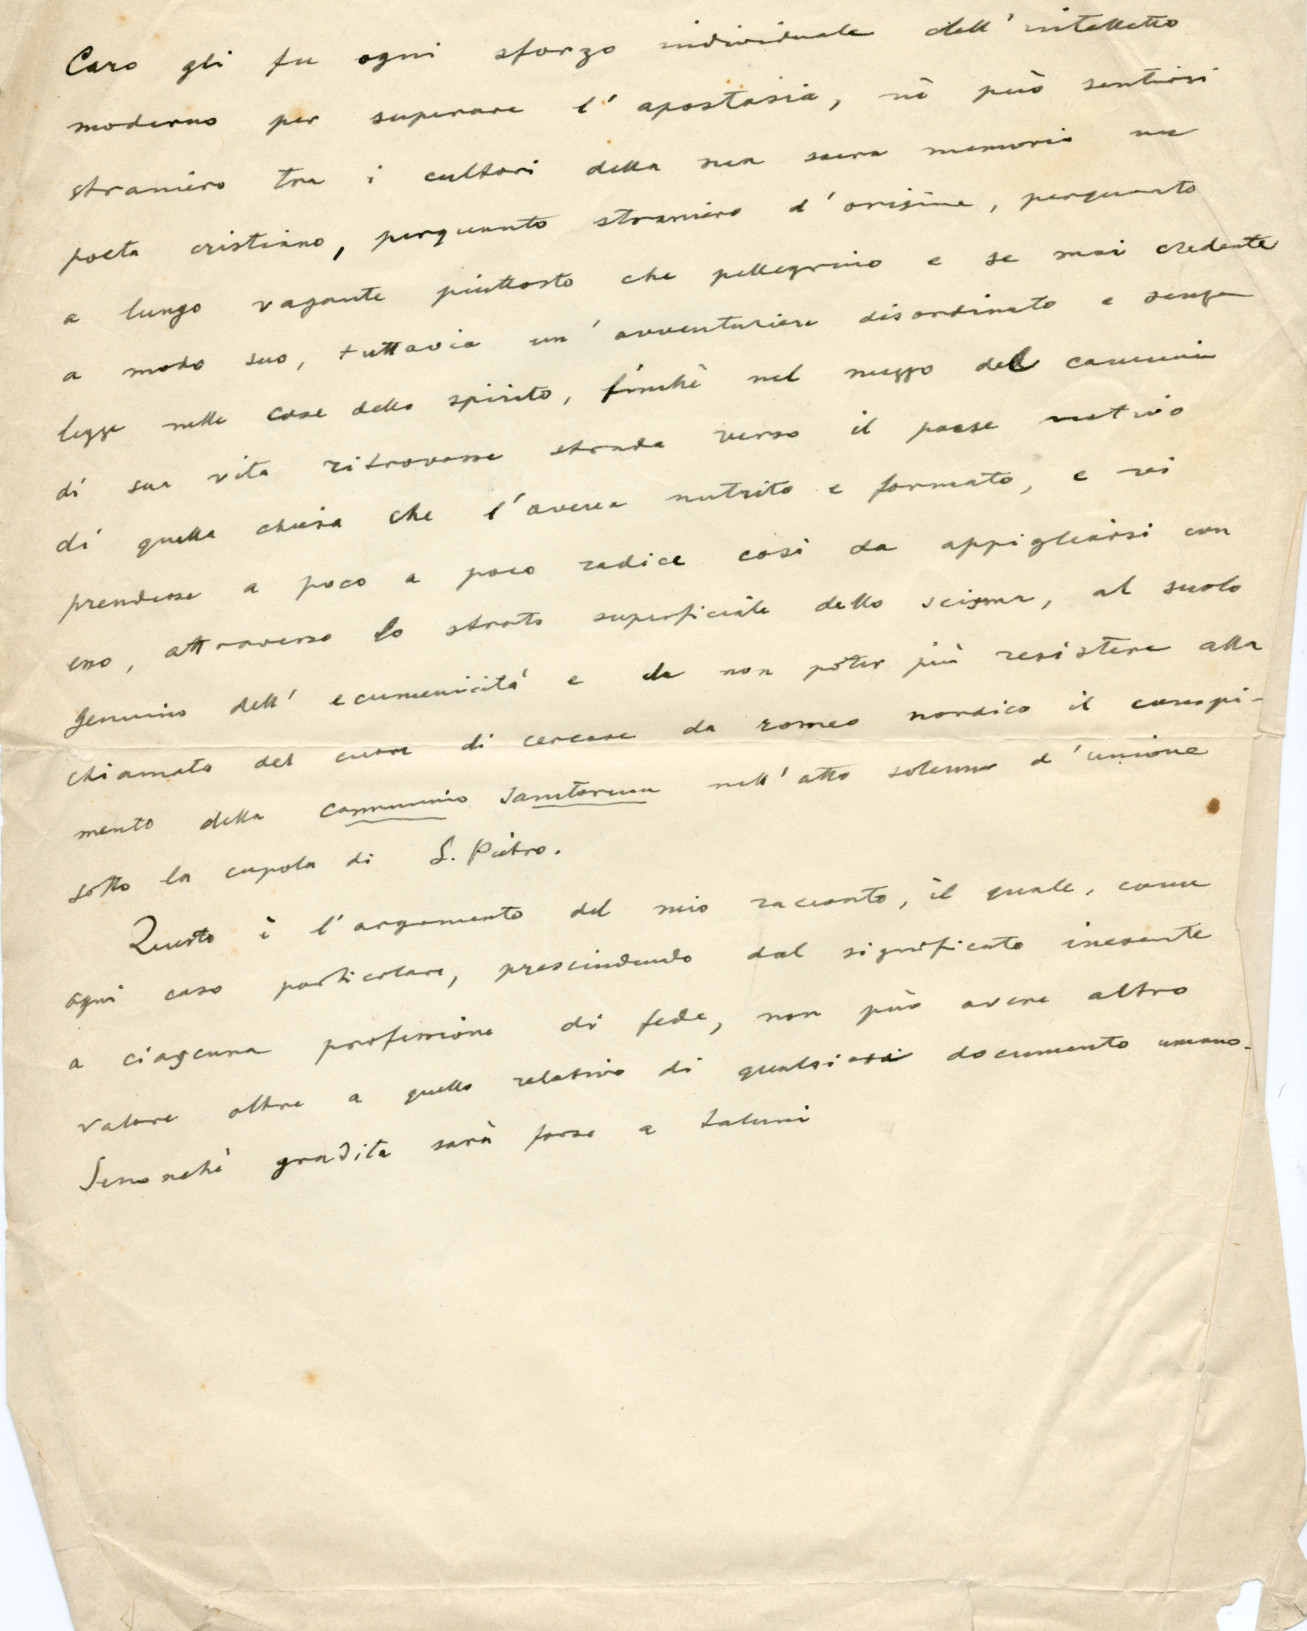 Caro gli fu ogni sforzo individuale dell'intelletto
moderno per superare l'apostasia, nè può sentirsi
straniero tra i cultori della sua sacra memoria un
poeta cristiano, perquanto straniero d'origine, perquanto
a lungo vagante piuttosto che pellegrino e se mai credente
a modo suo, tuttavia un'avventuriere disordinato e senza
legge nelle cose dello spirito, finchè nel mezzo del cammin
di sua vita ritrovasse strada verso il paese nativo
di quella chiesa che l'aveva nutrito e formato, e vi
prendesse a poco a poco radice così da appigliarsi con
essa, attraverso lo strato superficiale dello scisma, al suolo
genuino dell'ecumenicità e da non poter più resistere alla
chiamata del cuore di cercare da romeo nordico il compi-
mento della communio sanctorum nell'atto solenne d'unione
sotto la cupola di S. Pietro.
Questo è l'argomento del mio racconto, il quale, come
ogni caso particolare, prescindendo dal significato inerente
a ciascuna professione di fede, non può avere altro
valore oltre a quello relativo di qualsiasi documento umano.
Senonchè gradita sarà forse a taluni